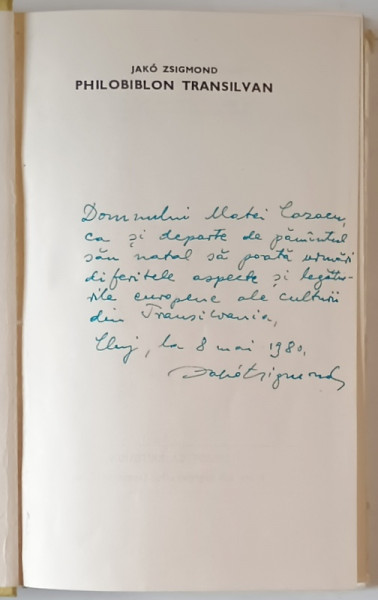 JAKÓ ZSIGMOND
PHILOBIBLON TRANSILVAN
Domnului Matei Cazacu,
ca și departe de pămîntul
său natal să poată urmări
diferitele aspecte și legătu-
rile europene ale culturii
din Transilvania,
Cluj, la 8 mai 1980.
Jakó Zsigmond